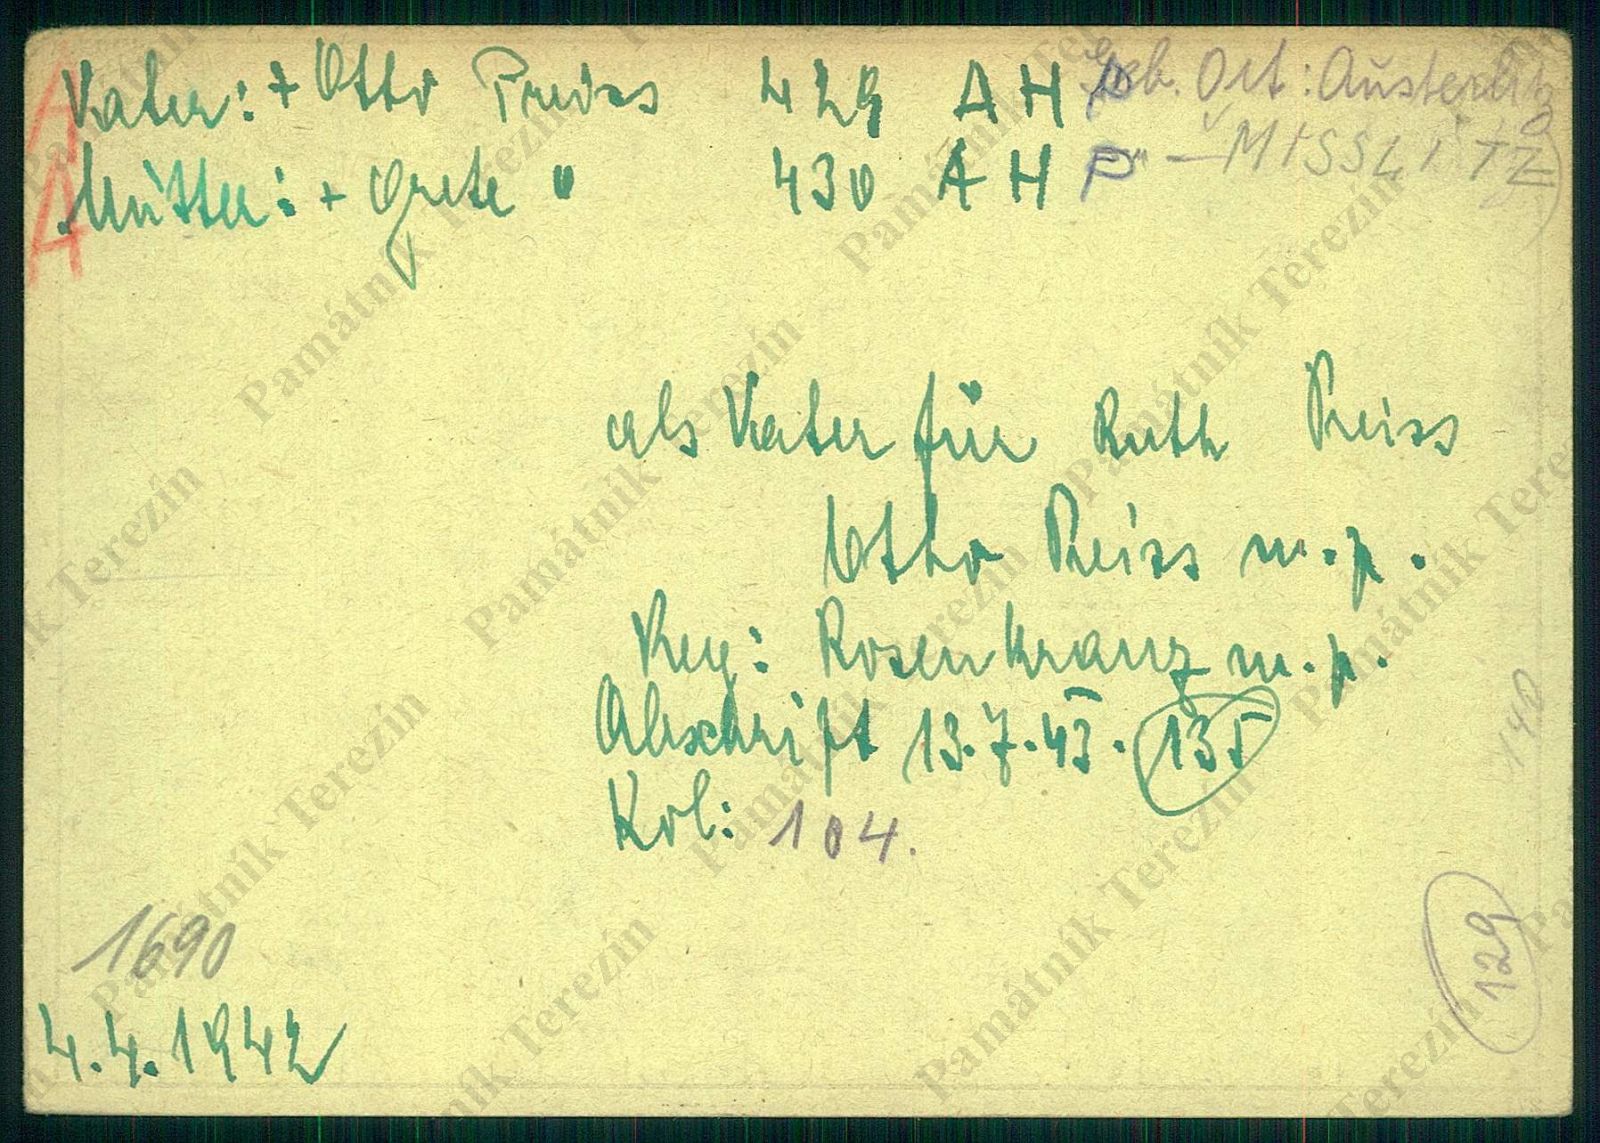 Vater: + Otto Preiss 429 AH P geb. Ort: Austerlitz
Mutter: + Grete " 430 AH P " — MISSLITZ
als Vater für Ruth Preiss
Otto Preiss m.p.
Reg: Rosenkranz m.p.
Abschrift 13.7.43. 135
Kol: 104.
140
129
1690
4.4.1942
Památník Terezín